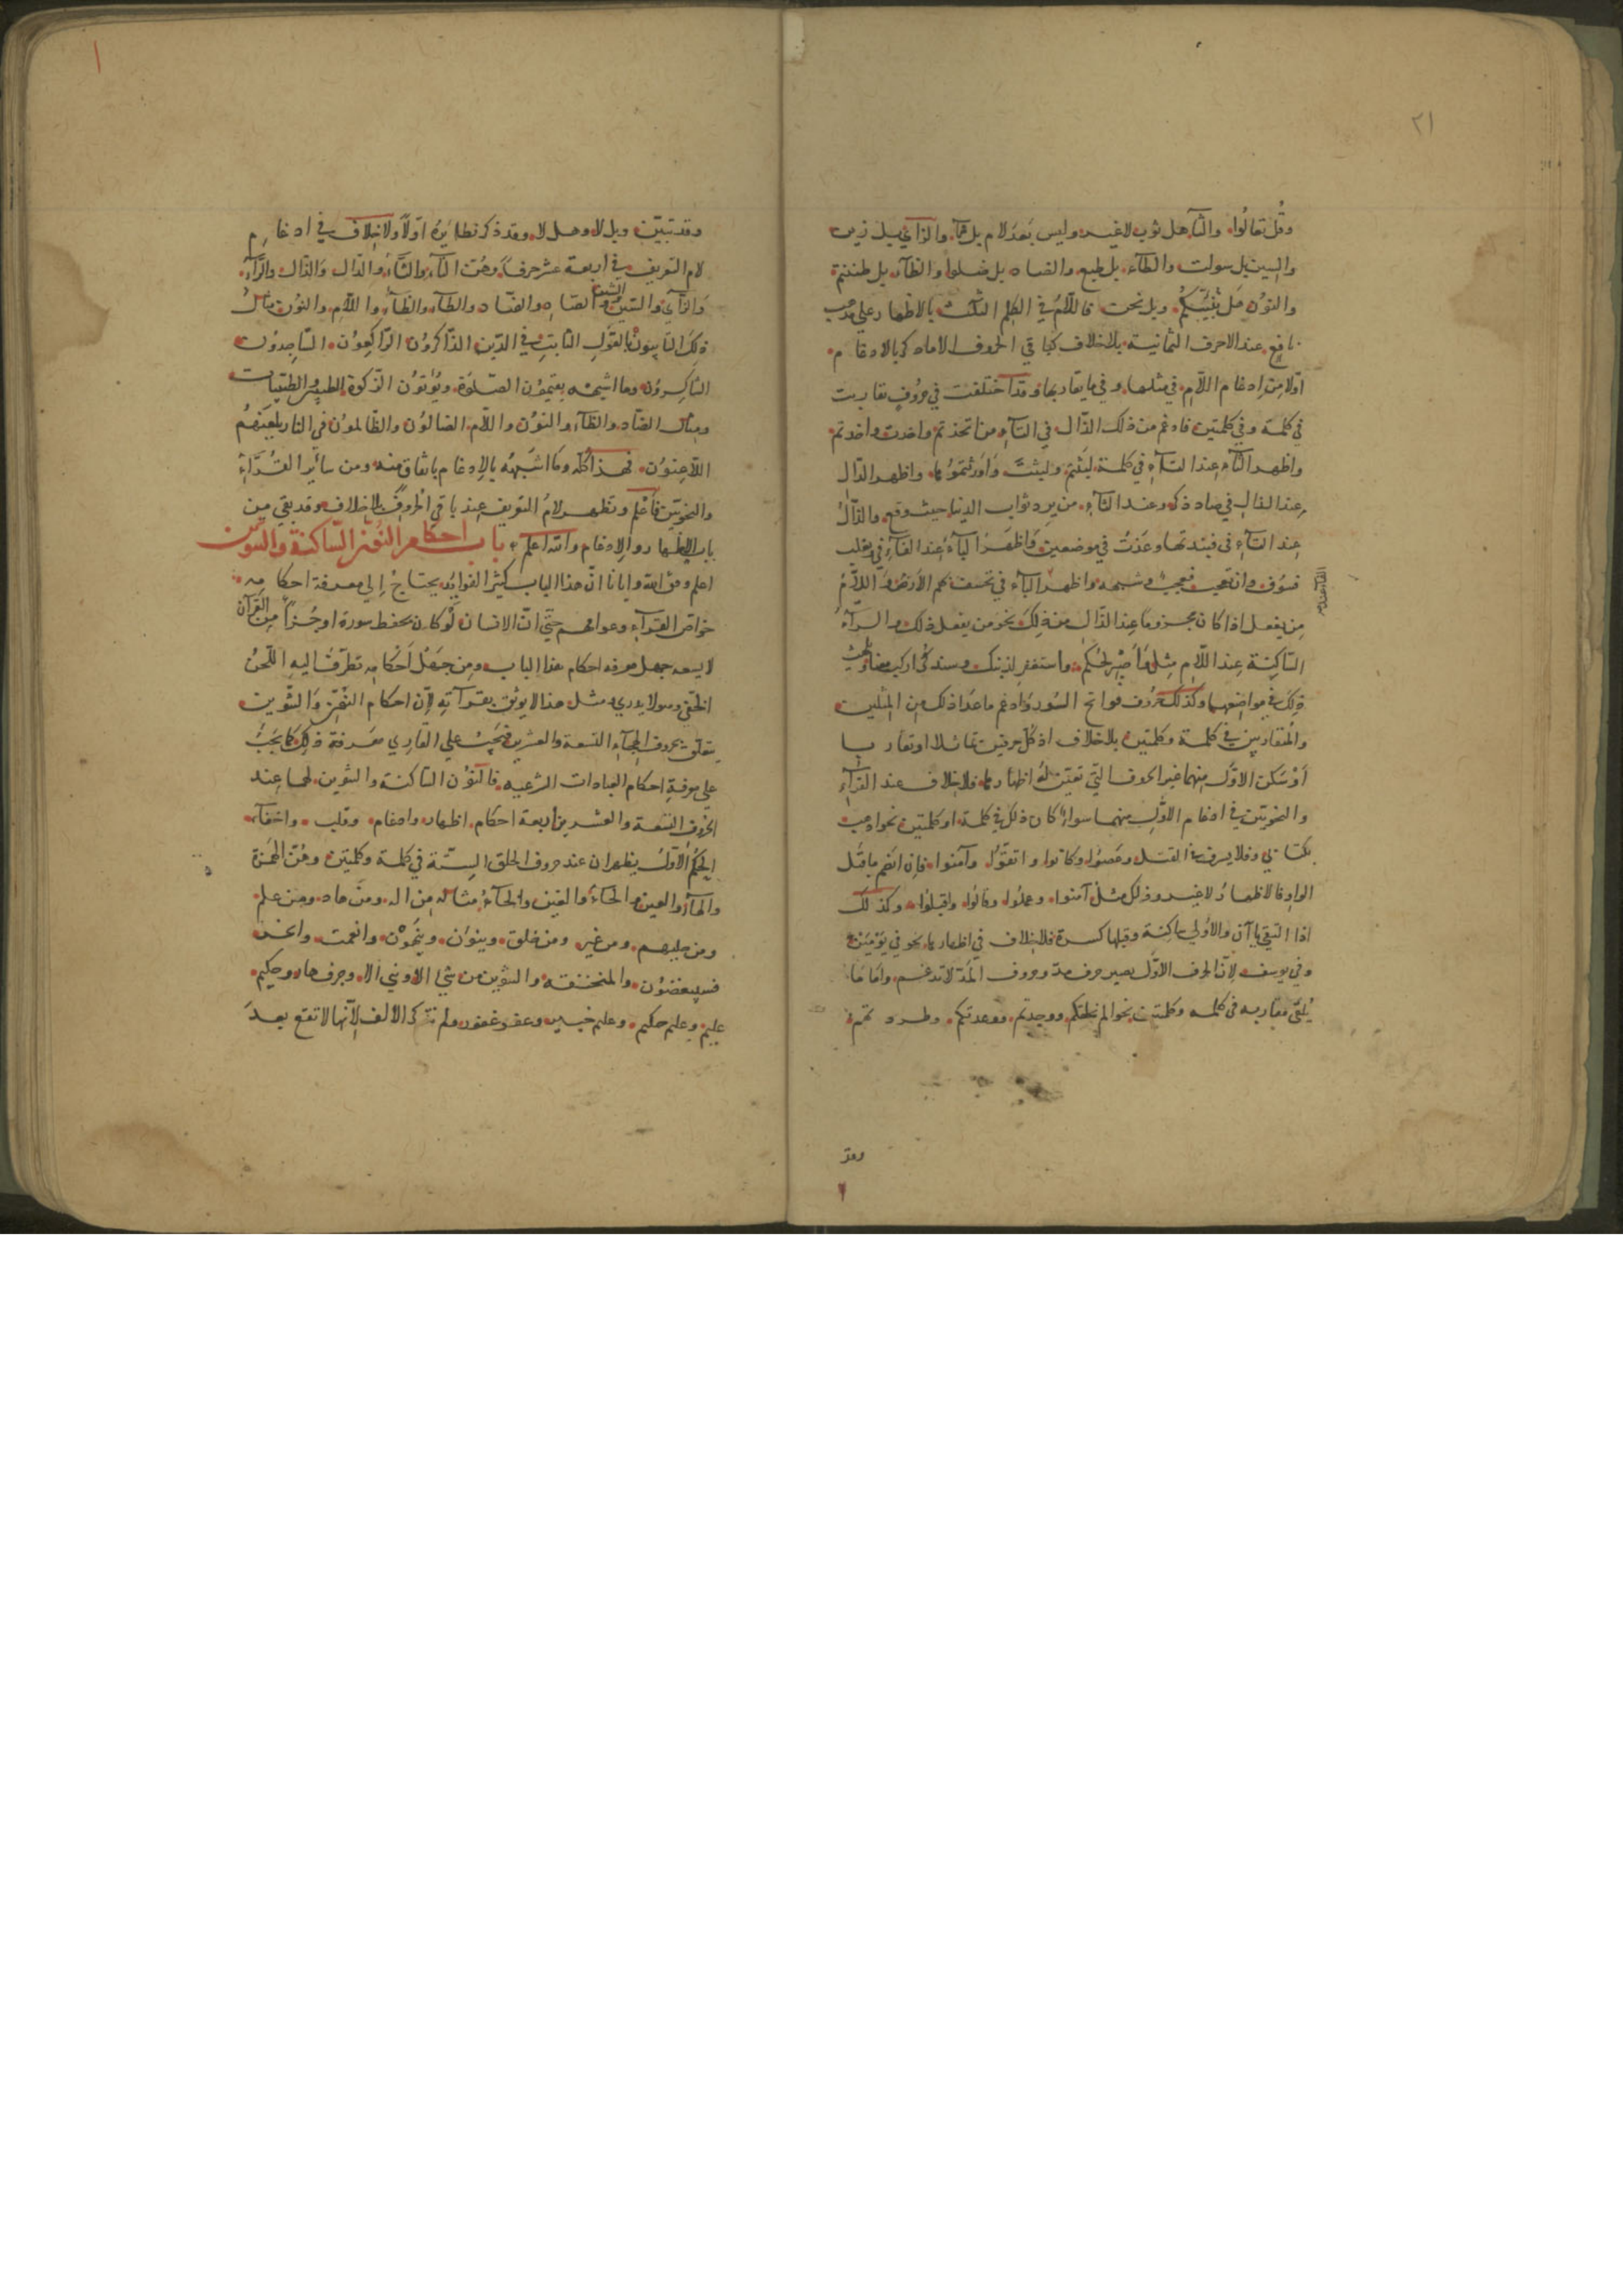 ٢١
وقُل تعالُوا. والثآء هل ثوب لاغير. وليس بَعدَ لام بل ثآء. والزاي بل زين
والسين بل سولت والطآء. بل طبع. والضاد بل ضلوا والظآء. بل ظننتم
والنوُن هَل نُنَبِّئكمُ. وبل نحن فاللّامُ في الكلِم الثلث بالاظهار علي مذهب
نافع. عند الاحرف الثمانية. بلاخلاف كباقي الحروف الاماذكر بالادغام.
اوّلا مِن اِدغام اللّام. في مثلها. وفي مايقاربها. وقد اختلفت في حُروُفٍ تقاربت
في كلمة وفي كلمتين فادغم من ذلك الذّال في التآء. من اتخذتم واخذت. واخذتم.
واظهر الثآء عِند التآءِ في كلمة. لبَثتم. ولبثتَ وَأورثتموُها. واظهر الدّال
عِند الذالِ في صاد ذكر. وعند الثآءِ. من يرد ثواب الدنيا. حيث وقع. والذّالُ
عِند التآءِ في فنبذتها. وعُذتُ في موضعين. وَاظهَرَ البآءَ عِند الفآءِ في يغلب
فسَوُف. وان تعجب فعجبٌ. وشبهه. واظهر الفآء عند البآء في نخسف بهم الأرضَ. وَاللّامُ
مِن يفعل اذا كان مجزوما عِند الذّال من ذلِكَ. نحو من يفعل ذلك. والرّآءُ
السّاكِنة عِند اللّامِ مِثل فَاَصْبِرْ لِحُكم. واستغفرلذنبك. وسنذكُر اركب معنا. ويلهث
ذلِكَ في مواضعها. وكذلك حُروُف فواتح السُور. وَادغم ماعَدَا ذلك مِن المِثلين
والمُتقاربين في كلمة وكلمتين. بلاخلاف. اذ كُل حرفين تماثلا. اوتقاربا
اَوْ سَكن الاوّل مِنهما. غير الحروف التي تعيّن لهُ اظهارها. فلاخلاف عند القرآءِ
والنحويّين في ادغام الاوّلِ منهما سوآءً كان ذلكَ في كلمة. اوكلمتين. نحو اذهب
بكتابي. وفلا يسرف في القتل. وعَصَوْا وكانوا. واتقوْا. وآمنوا. فاِن انضم ماقبل
الواوِ فالاظهارُ لاغير. وذلك مثل آمنوا. وعملُوا. وقالوُا. واقبلوُا. وكذلك
اذا التقي يآآن. والأولي ساكِنة. وقبلها كسرة فلاخلاف في اظهارها. نحو في يَوْمَيْن.
وفي يوسف. لِأنّ الحرف الاوّل يصير حرف مدّ. وحروف المَدّ لاتدغم. وَامّا ما
يُلقي مقاربه في كلمه. وكلمتين. نحو الم نخلقكم. ووجدتم. ووعدتكم. وطردتهم.
وقد
وقد تبيّن. وبل لا. وهل لا. وقد ذكر نظايرهُ اوّلاً. ولاخِلاف في ادغام
لام التعريف في اربعة عشر حرفاً. وهُنّ التآءِ. والثّآءُ. والدّال. وَالذّال. والرّآء.
وَالزايُ. والسّين. والشين والصّاد. والضّاد. والطآء. والظآءُ. واللّام. والنون. مثالُ
ذلِكَ التآيبونَ. بالقَوْلِ الثابتِ. في الدّين. الذّاكروُن. الرّاكِعوُن. السّاجِدوُن.
الشّاكِروُن. وما اشبهه. يقيموُن الصّلوةَ. ويؤتوُن الزّكوة. الطيبين. الطيبات.
ومِثال الضّاد. والظآء. والنوُن. واللّام. الضالوُن. والظّالموُن. في النار. يلعنهُمُ
اللّاعِنوُن. فهذَا كُلهُ. وَمَا اشبَههُ بالإدغام. باتّفاق منه. ومن سآئر القُرّآءِ
والنحويّين فأعلم. وتظهر لامُ التعريف. عِند باقي الحُروُفِ بلاخلاف. وقد بقي من
باب الإظهار والإدغام. والله اعلم. باب احكام النوُن السّاكنة والتّنوين
اعلم وفق الله وايانا انّ هذا الباب كثير الفوايد. يحتاجُ إلي معرفة احكامه.
خواصّ القرآءِ وعوامهم حتّي انّ الانسان لَوْ كان يحفظ سورة اوجُزءاً مِن القرآن
لايسعه جهل معرفه احكام هذا الباب. ومِن جَهَلَ اَحْكامه. تطرّقَ اليهِ اللّحنُ
الخفي وهو لايدري. ومثل هذا لايوُثق بقرآته. لأنّ احكام النوُن وَالتنوين
يتعلق بحروُف الهجآء. التسعة والعشرين فَيَجبُ علي القارِي معَرفة ذلِكَ كَما يَجبُ
علي معرفةِ احكام العبادات الشرعيه. فالنوُن الساكنة والتنوين. لهما عِند
الحروُف التسعة والعشرين أربعة احكام. اظهار. وادغام. وقلب. واخفآء.
الحكم الأوّلُ يظهران عند حروف الحلق السِتّة في كلمة وكلمتين وهُنّ الهمزة
والهآءُ والعين. والحآءُ والغين. والخآءُ. مثاله مِن اله. ومن هاد. ومن علم.
ومن حليهم. ومن غير. ومن خلق. وينوُن. وينحِتوُن. وانعمت. وانحر.
فسيبغضوُن. والمنخنقة. والتنوين. من شيءٍ الا. وشي الا. وجرف هار. وحكيم.
عليم. وعليم حكيم. وعليم خبير. وعفوغفور. ولم تذكر الالف. لأنّها لاتقع بعدَ